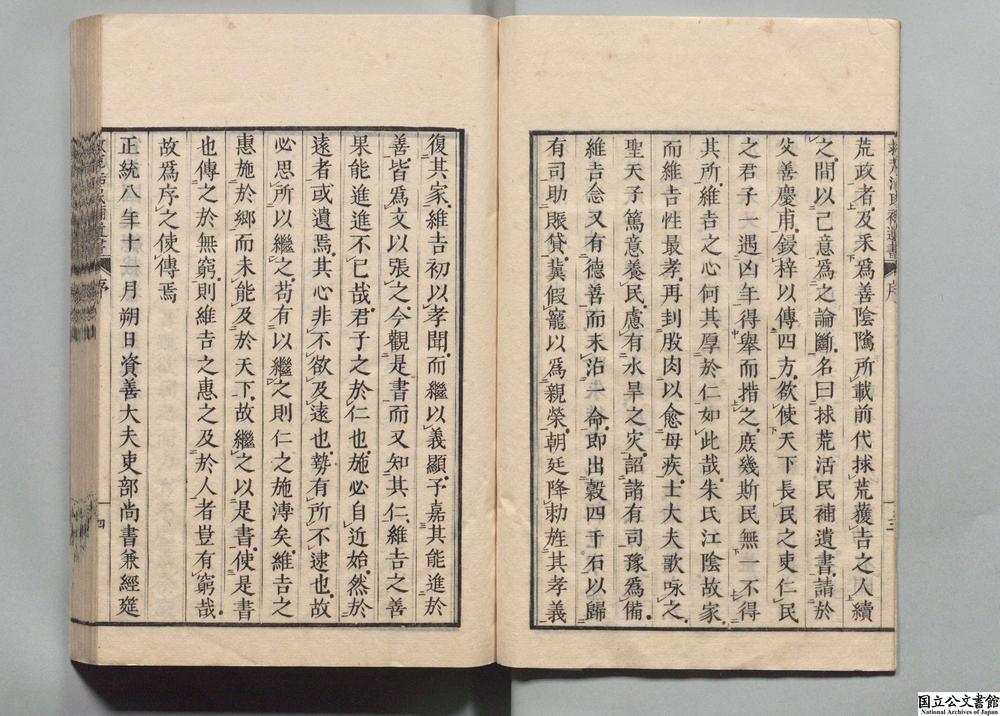 荒政者及采爲善陰隲所載前代捄荒獲吉之人續
之間以己意爲之論斷名曰捄荒活民補遺書請於
父善慶甫鋟梓以傳四方欲使天下長民之吏仁民
之君子一遇凶年得舉而措之庶幾斯民無一不得
其所維吉之心何其厚於仁如此哉朱氏江陰故家
而維吉性最孝再刲股肉以愈母疾士大夫歌咏之
聖天子篤意養民慮有水旱之灾詔諸有司豫爲備
維吉念又有德善而未沾一命卽出穀四千石以歸
有司助賑貸冀假寵以爲親榮朝廷降勑旌其孝義
三
復其家維吉初以孝聞而繼以義顯予嘉其能進於
善皆爲文以張之今觀是書而又知其仁維吉之善
果能進進不已哉君子之於仁也施必自近始然於
遠者或遺焉其心非不欲及遠也勢有所不逮也故
必思所以繼之苟有以繼之則仁之施溥矣維吉之
惠施於鄉而未能及於天下故繼之以是書使是書
也傳之於無窮則維吉之惠之及於人者豈有窮哉
故爲序之使傳焉
正統八年十一月朔日資善大夫吏部尚書兼經筵
序
四
国立公文書館
National Archives of Japan